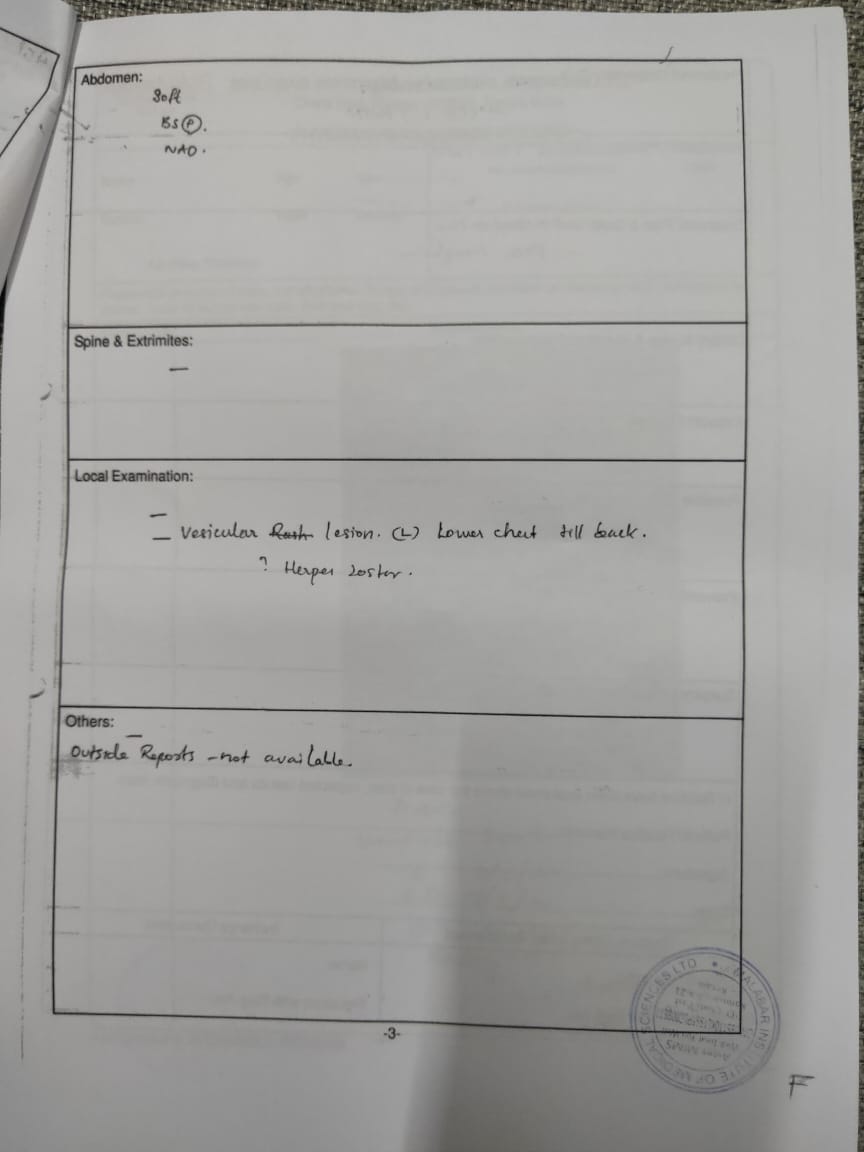 Abdomen:
Soft
BS (P).
NAD.
Spine & Extrimites:
—
Local Examination:
— Vesicular Rash lesion. (L) Lower chest till back.
? Herpes Zoster.
Others:
Outside Reports - not available.
-3-
MALABAR INSTITUTE OF MEDICAL SCIENCES LTD.
F